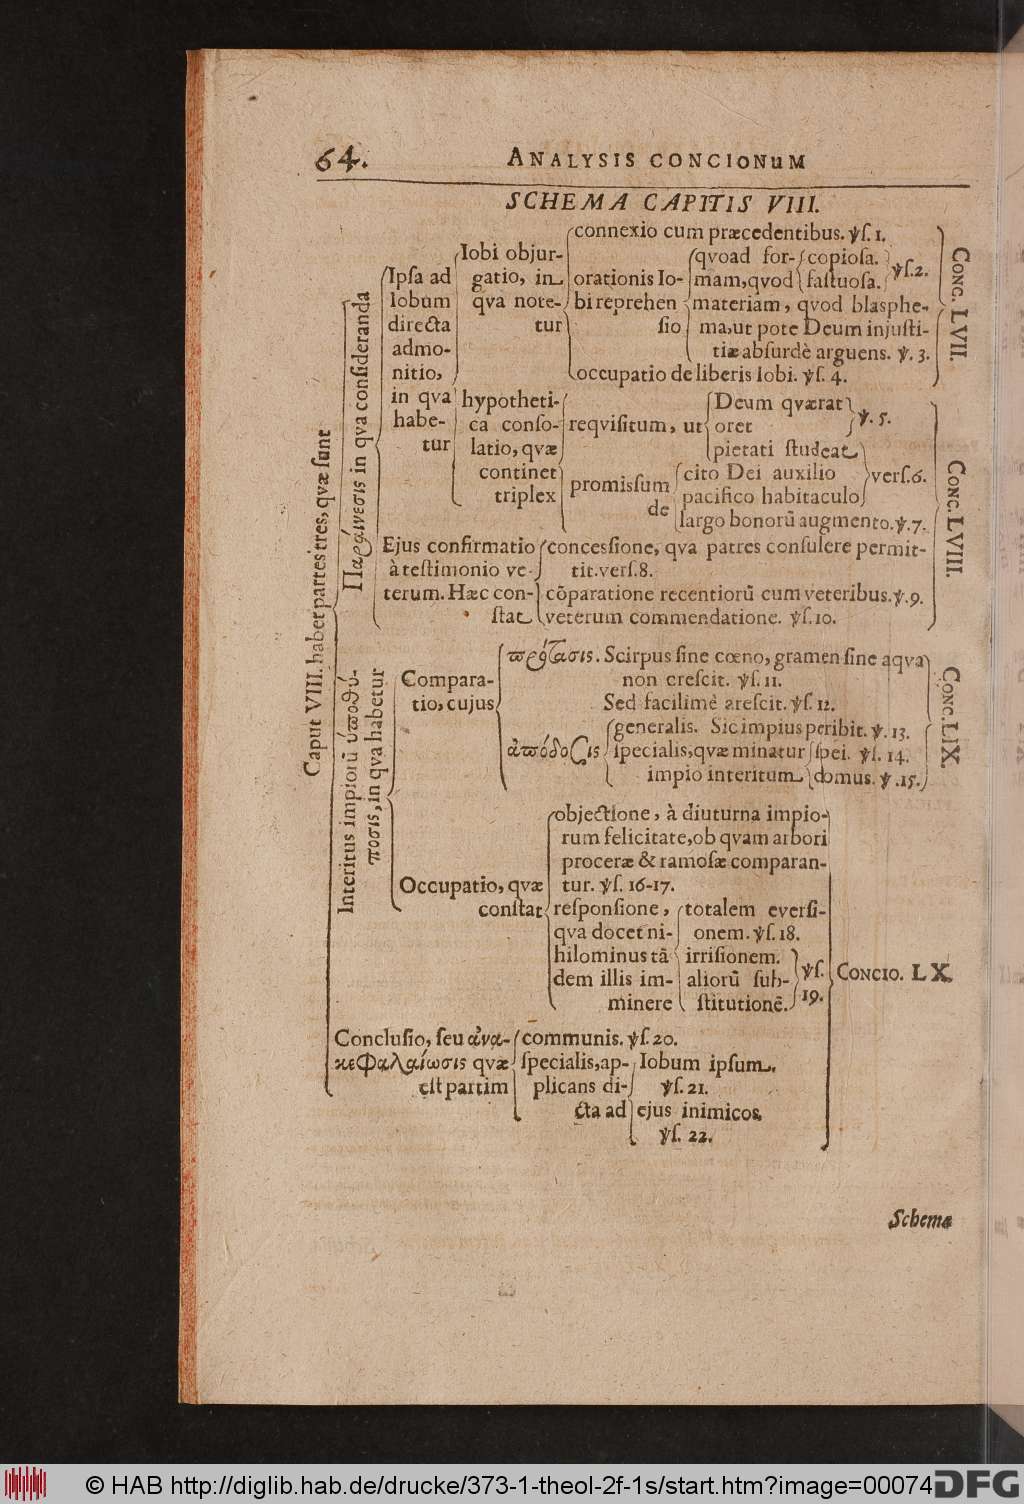 64.
ANALYSIS CONCIONUM
SCHEMA CAPITIS VIII.
Caput VIII. habet partes tres, qvæ sunt
Παραίνεσις in qva consideranda
Ipsa ad
Iobum
directa
admo-
nitio,
in qva
habe-
tur
Iobi objur-
gatio, in
qva note-
tur
connexio cum præcedentibus. ℣ſ. 1.
orationis Io-
bi reprehen
sio
qvoad for-
mam, qvod
copiosa.
fastuosa.
℣ſ. 2.
materiam, qvod blasphe-
ma, ut pote Deum injusti-
tiæ absurdè arguens. ℣. 3.
occupatio de liberis Iobi. ℣ſ. 4.
CONC. LVII.
hypotheti-
ca conso-
latio, qvæ
continet
triplex
reqvisitum, ut
Deum qværat
oret
℣. 5.
pietati studeat
promissum
de
cito Dei auxilio
pacifico habitaculo
vers. 6.
largo bonorū augmento. ℣. 7.
Ejus confirmatio
à testimonio ve-
terum. Hæc con-
stat
concessione, qva patres consulere permit-
tit. vers. 8.
cōparatione recentiorū cum veteribus. ℣. 9.
veterum commendatione. ℣ſ. 10.
CONC. LVIII.
Interitus impiorū ὑποθύ-
ποσις, in qva habetur
Compara-
tio, cujus
πρότασις. Scirpus sine cœno, gramen sine aqva
non crescit. ℣ſ. 11.
Sed facilimè arescit. ℣ſ. 12.
ἀπόδοσις
generalis. Sic impius peribit. ℣. 13.
specialis, qvæ minatur
impio interitum
spei. ℣ſ. 14.
domus. ℣. 15.
CONC. LIX.
Occupatio, qvæ
constat
objectione, à diuturna impio-
rum felicitate, ob qvam arbori
proceræ & ramosæ comparan-
tur. ℣ſ. 16-17.
responsione,
qva docet ni-
hilominus tā
dem illis im-
minere
totalem eversi-
onem. ℣ſ. 18.
irrisionem.
aliorū sub-
stitutionē.
℣ſ.
19.
CONCIO. LX.
Conclusio, seu ἀνα-
κεφαλαίωσις qvæ
est partim
communis. ℣ſ. 20.
specialis, ap-
plicans di-
cta ad
Iobum ipsum,
℣ſ. 21.
ejus inimicos
℣ſ. 22.
Schema
© HAB http://diglib.hab.de/drucke/373-1-theol-2f-1s/start.htm?image=00074
DFG